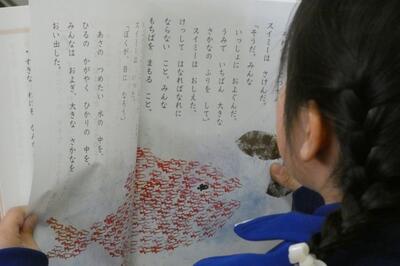 スイミーは さけんだ。
「そうだ。みんな
いっしょに およぐんだ。
うみで いちばん 大きな
さかなの ふりを して。」
スイミーは おしえた。
けっして はなればなれに
ならない こと。みんな
もちばを まもる こと。
「ぼくが、目に なろう。」
あさの つめたい 水の 中を、
ひるの かがやく ひかりの 中を、
みんなは およぎ、大きな さかなを
おい出した。